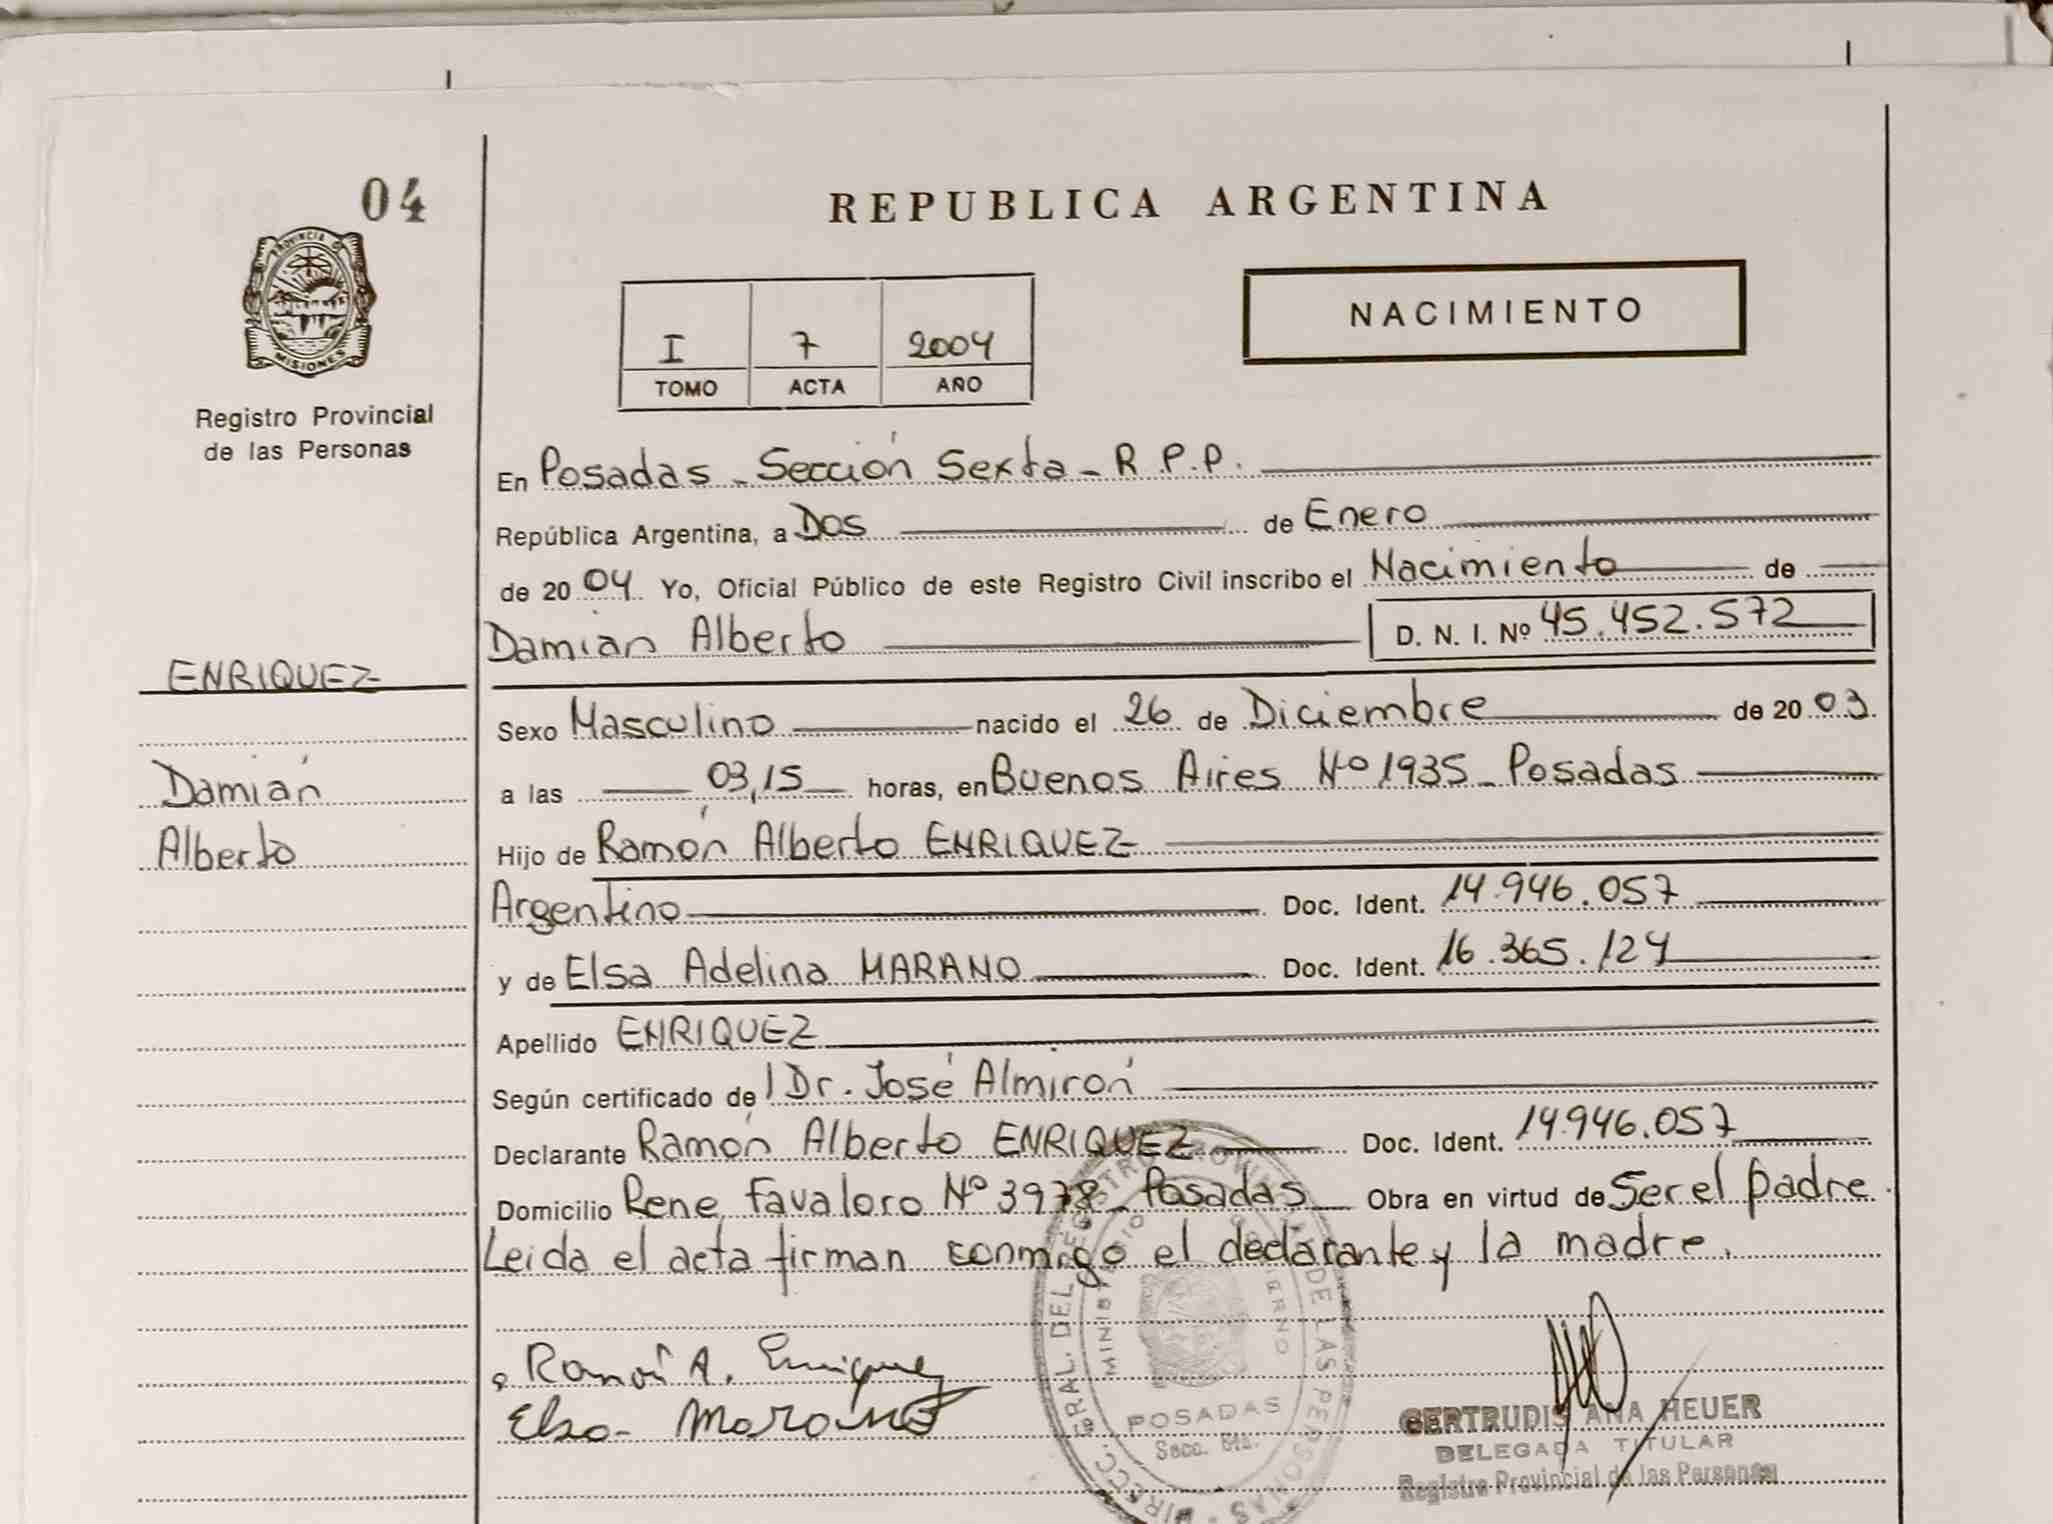 04
PROVINCIA DE
MISIONES
Registro Provincial
de las Personas
ENRIQUEZ
Damián
Alberto
REPUBLICA ARGENTINA
I 7 2004
TOMO ACTA AÑO
NACIMIENTO
En Posadas - Sección Sexta - R.P.P.
República Argentina, a Dos de Enero
de 2004 Yo, Oficial Público de este Registro Civil inscribo el Nacimiento de
Damián Alberto D. N. I. Nº 45.452.572
Sexo Masculino nacido el 26 de Diciembre de 2003.
a las 03,15 horas, en Buenos Aires Nº 1935 - Posadas
Hijo de Ramón Alberto ENRIQUEZ
Argentino Doc. Ident. 14.946.057
y de Elsa Adelina MARANO Doc. Ident. 16.365.124
Apellido ENRIQUEZ
Según certificado del Dr. José Almirón
Declarante Ramón Alberto ENRIQUEZ Doc. Ident. 14.946.057
Domicilio Rene Favaloro Nº 3978 - Posadas Obra en virtud de Ser el padre.
Leida el acta firman conmigo el declarante y la madre.
Ramón A. Enriquez
Elsa Marano
DIRECC. GRAL. DEL REGISTRO PROVINCIAL DE LAS PERSONAS
MINISTERIO GOBIERNO
POSADAS
Secc. 6ta.
GERTRUDIS ANA HEUER
DELEGADA TITULAR
Registro Provincial de las Personas